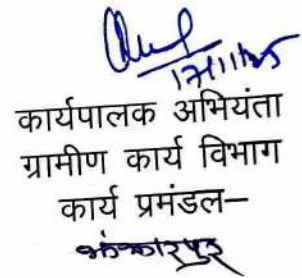 17/11/25
कार्यपालक अभियंता
ग्रामीण कार्य विभाग
कार्य प्रमंडल–
झंझारपुर